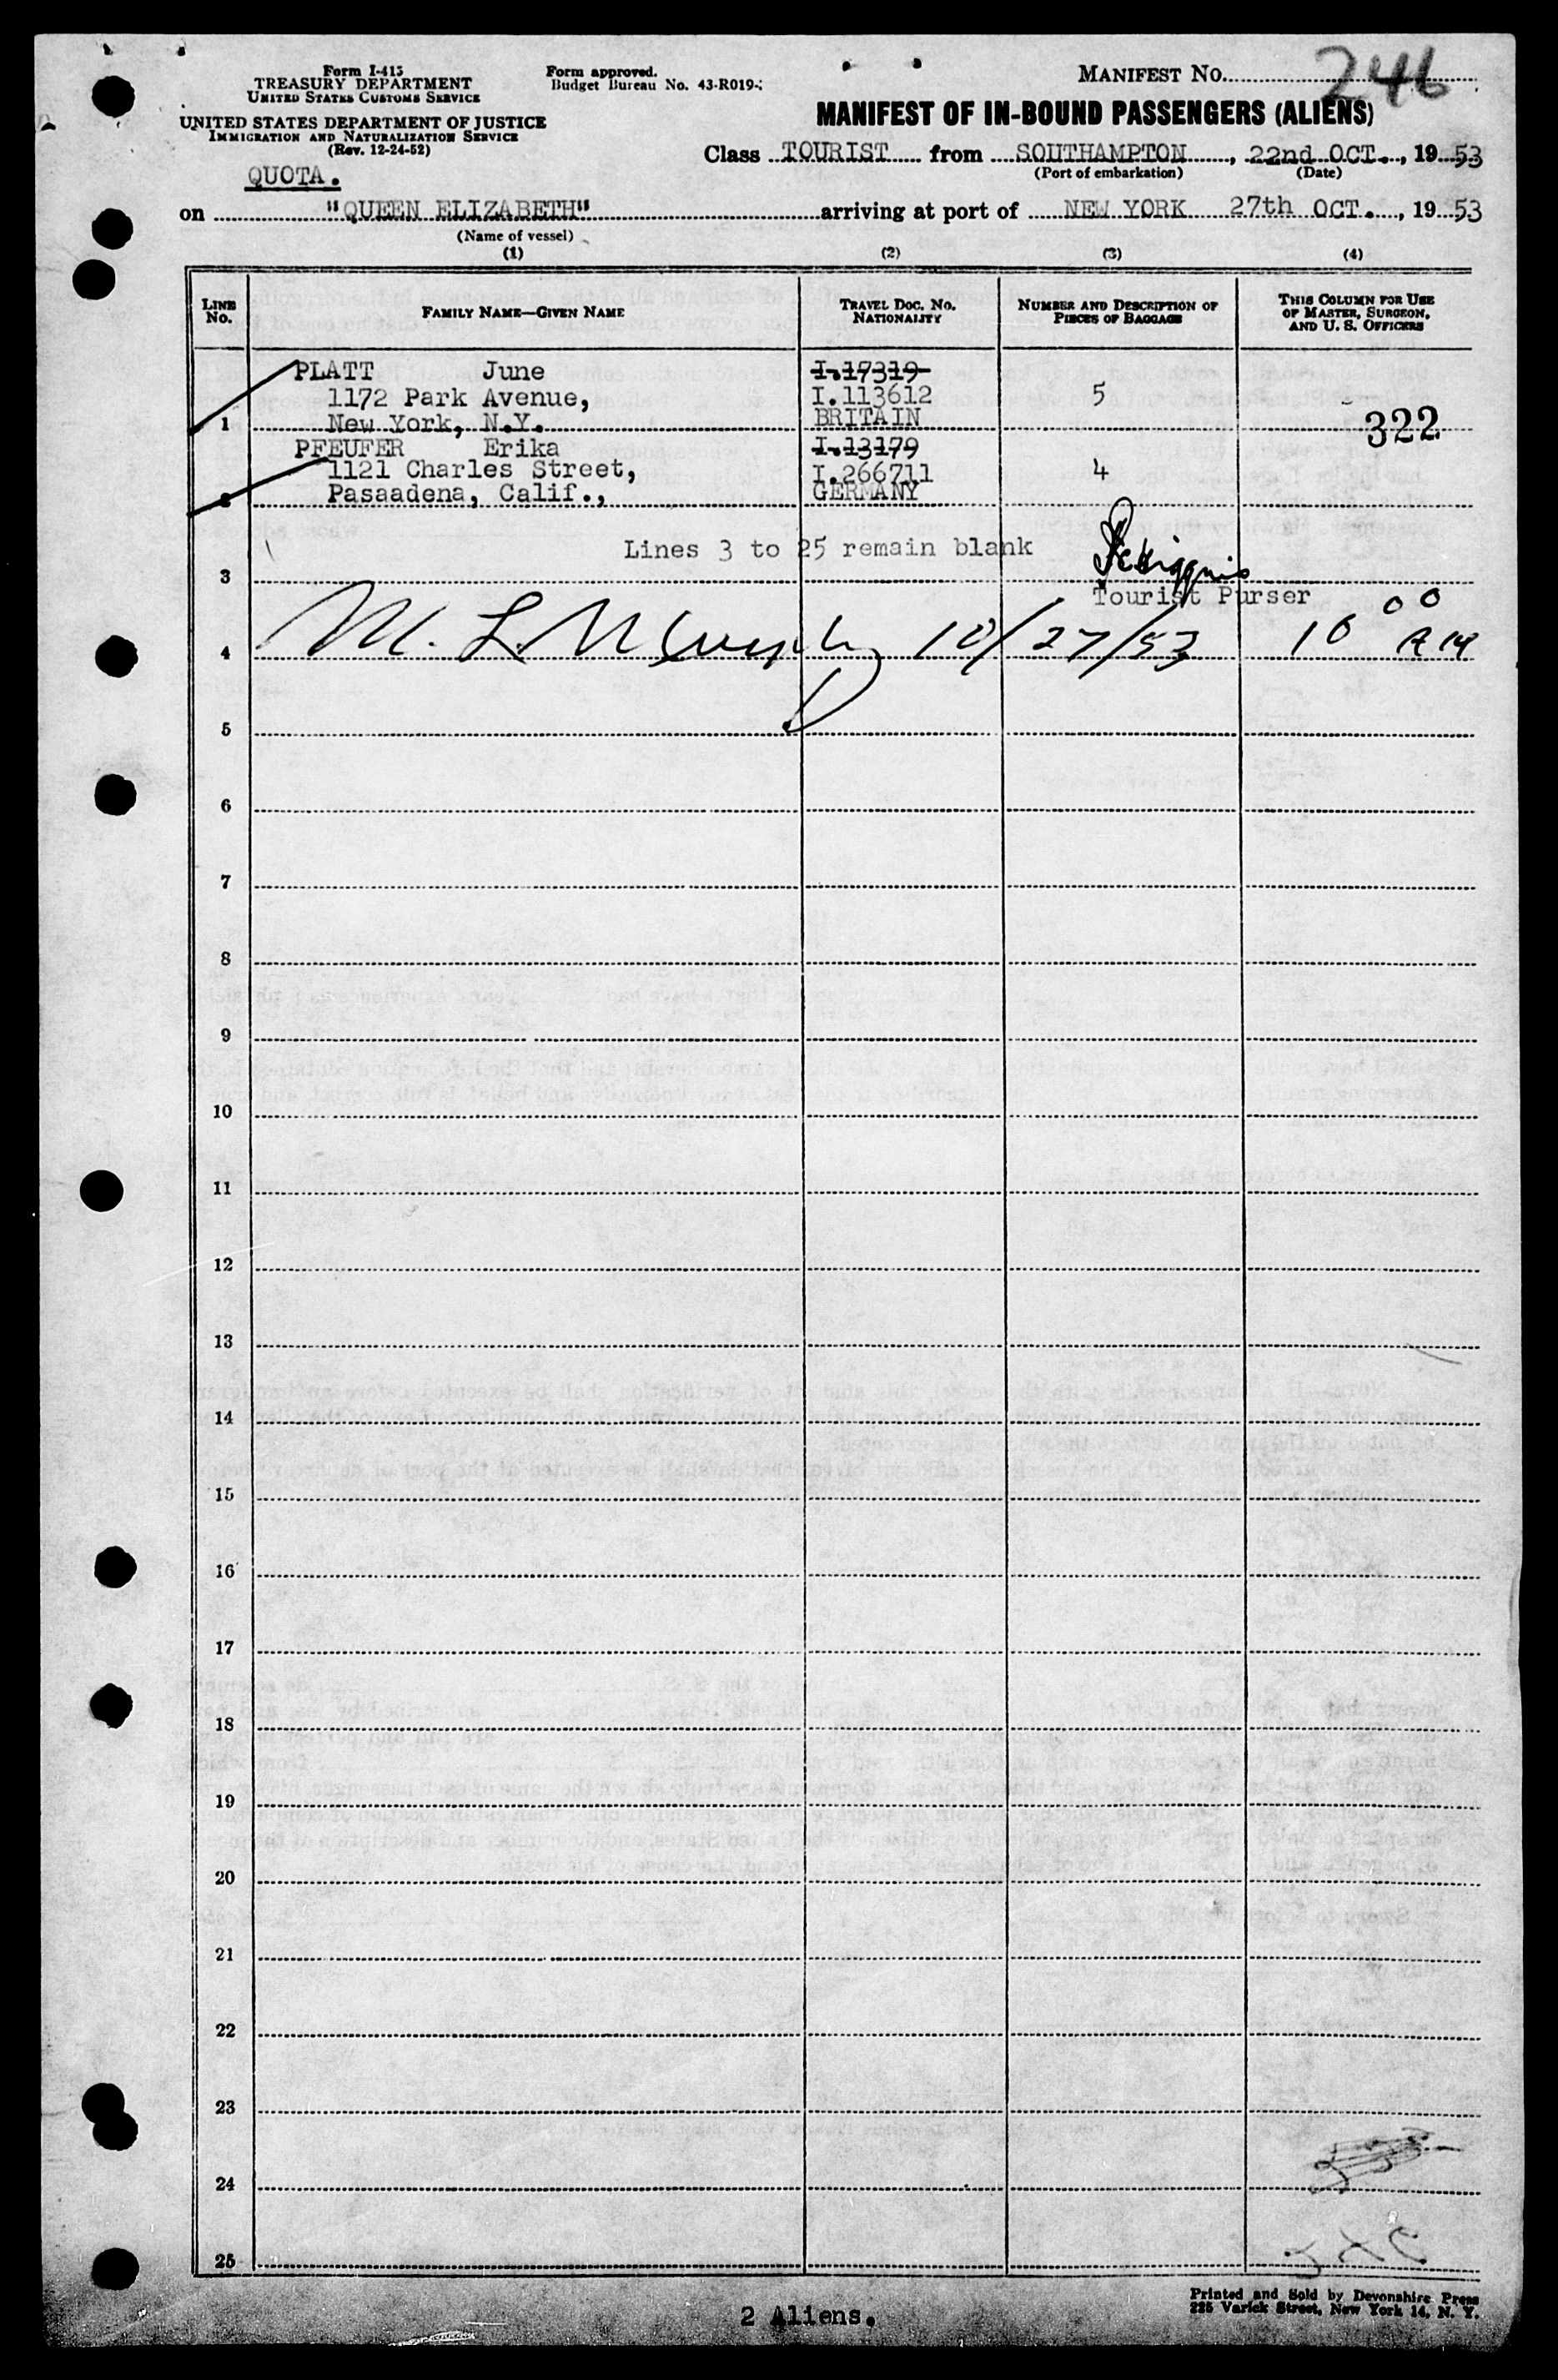 Form I-415
TREASURY DEPARTMENT
UNITED STATES CUSTOMS SERVICE
UNITED STATES DEPARTMENT OF JUSTICE
IMMIGRATION AND NATURALIZATION SERVICE
(Rev. 12-24-52)
Form approved.
Budget Bureau No. 43-R019-
MANIFEST No. 246
MANIFEST OF IN-BOUND PASSENGERS (ALIENS)
Class TOURIST from SOUTHAMPTON, 22nd OCT., 1953
(Port of embarkation) (Date)
QUOTA.
on "QUEEN ELIZABETH" arriving at port of NEW YORK 27th OCT., 1953
(Name of vessel)
(1) (2) (3) (4)
LINE No. FAMILY NAME—GIVEN NAME TRAVEL DOC. No. NATIONALITY NUMBER AND DESCRIPTION OF PIECES OF BAGGAGE THIS COLUMN FOR USE OF MASTER, SURGEON, AND U. S. OFFICERS
PLATT June I.17319
1172 Park Avenue, I.113612 5
1 New York, N.Y. BRITAIN 322
PFEUFER Erika I.13179
1121 Charles Street, I.266711 4
2 Pasaadena, Calif., GERMANY
Lines 3 to 25 remain blank
3
Tourist Purser
4 M. L. Murphy 10/27/53 10 00 AM
5
6
7
8
9
10
11
12
13
14
15
16
17
18
19
20
21
22
23
24
25
2 Aliens.
Printed and Sold by Devonshire Press
225 Varick Street, New York 14, N. Y.